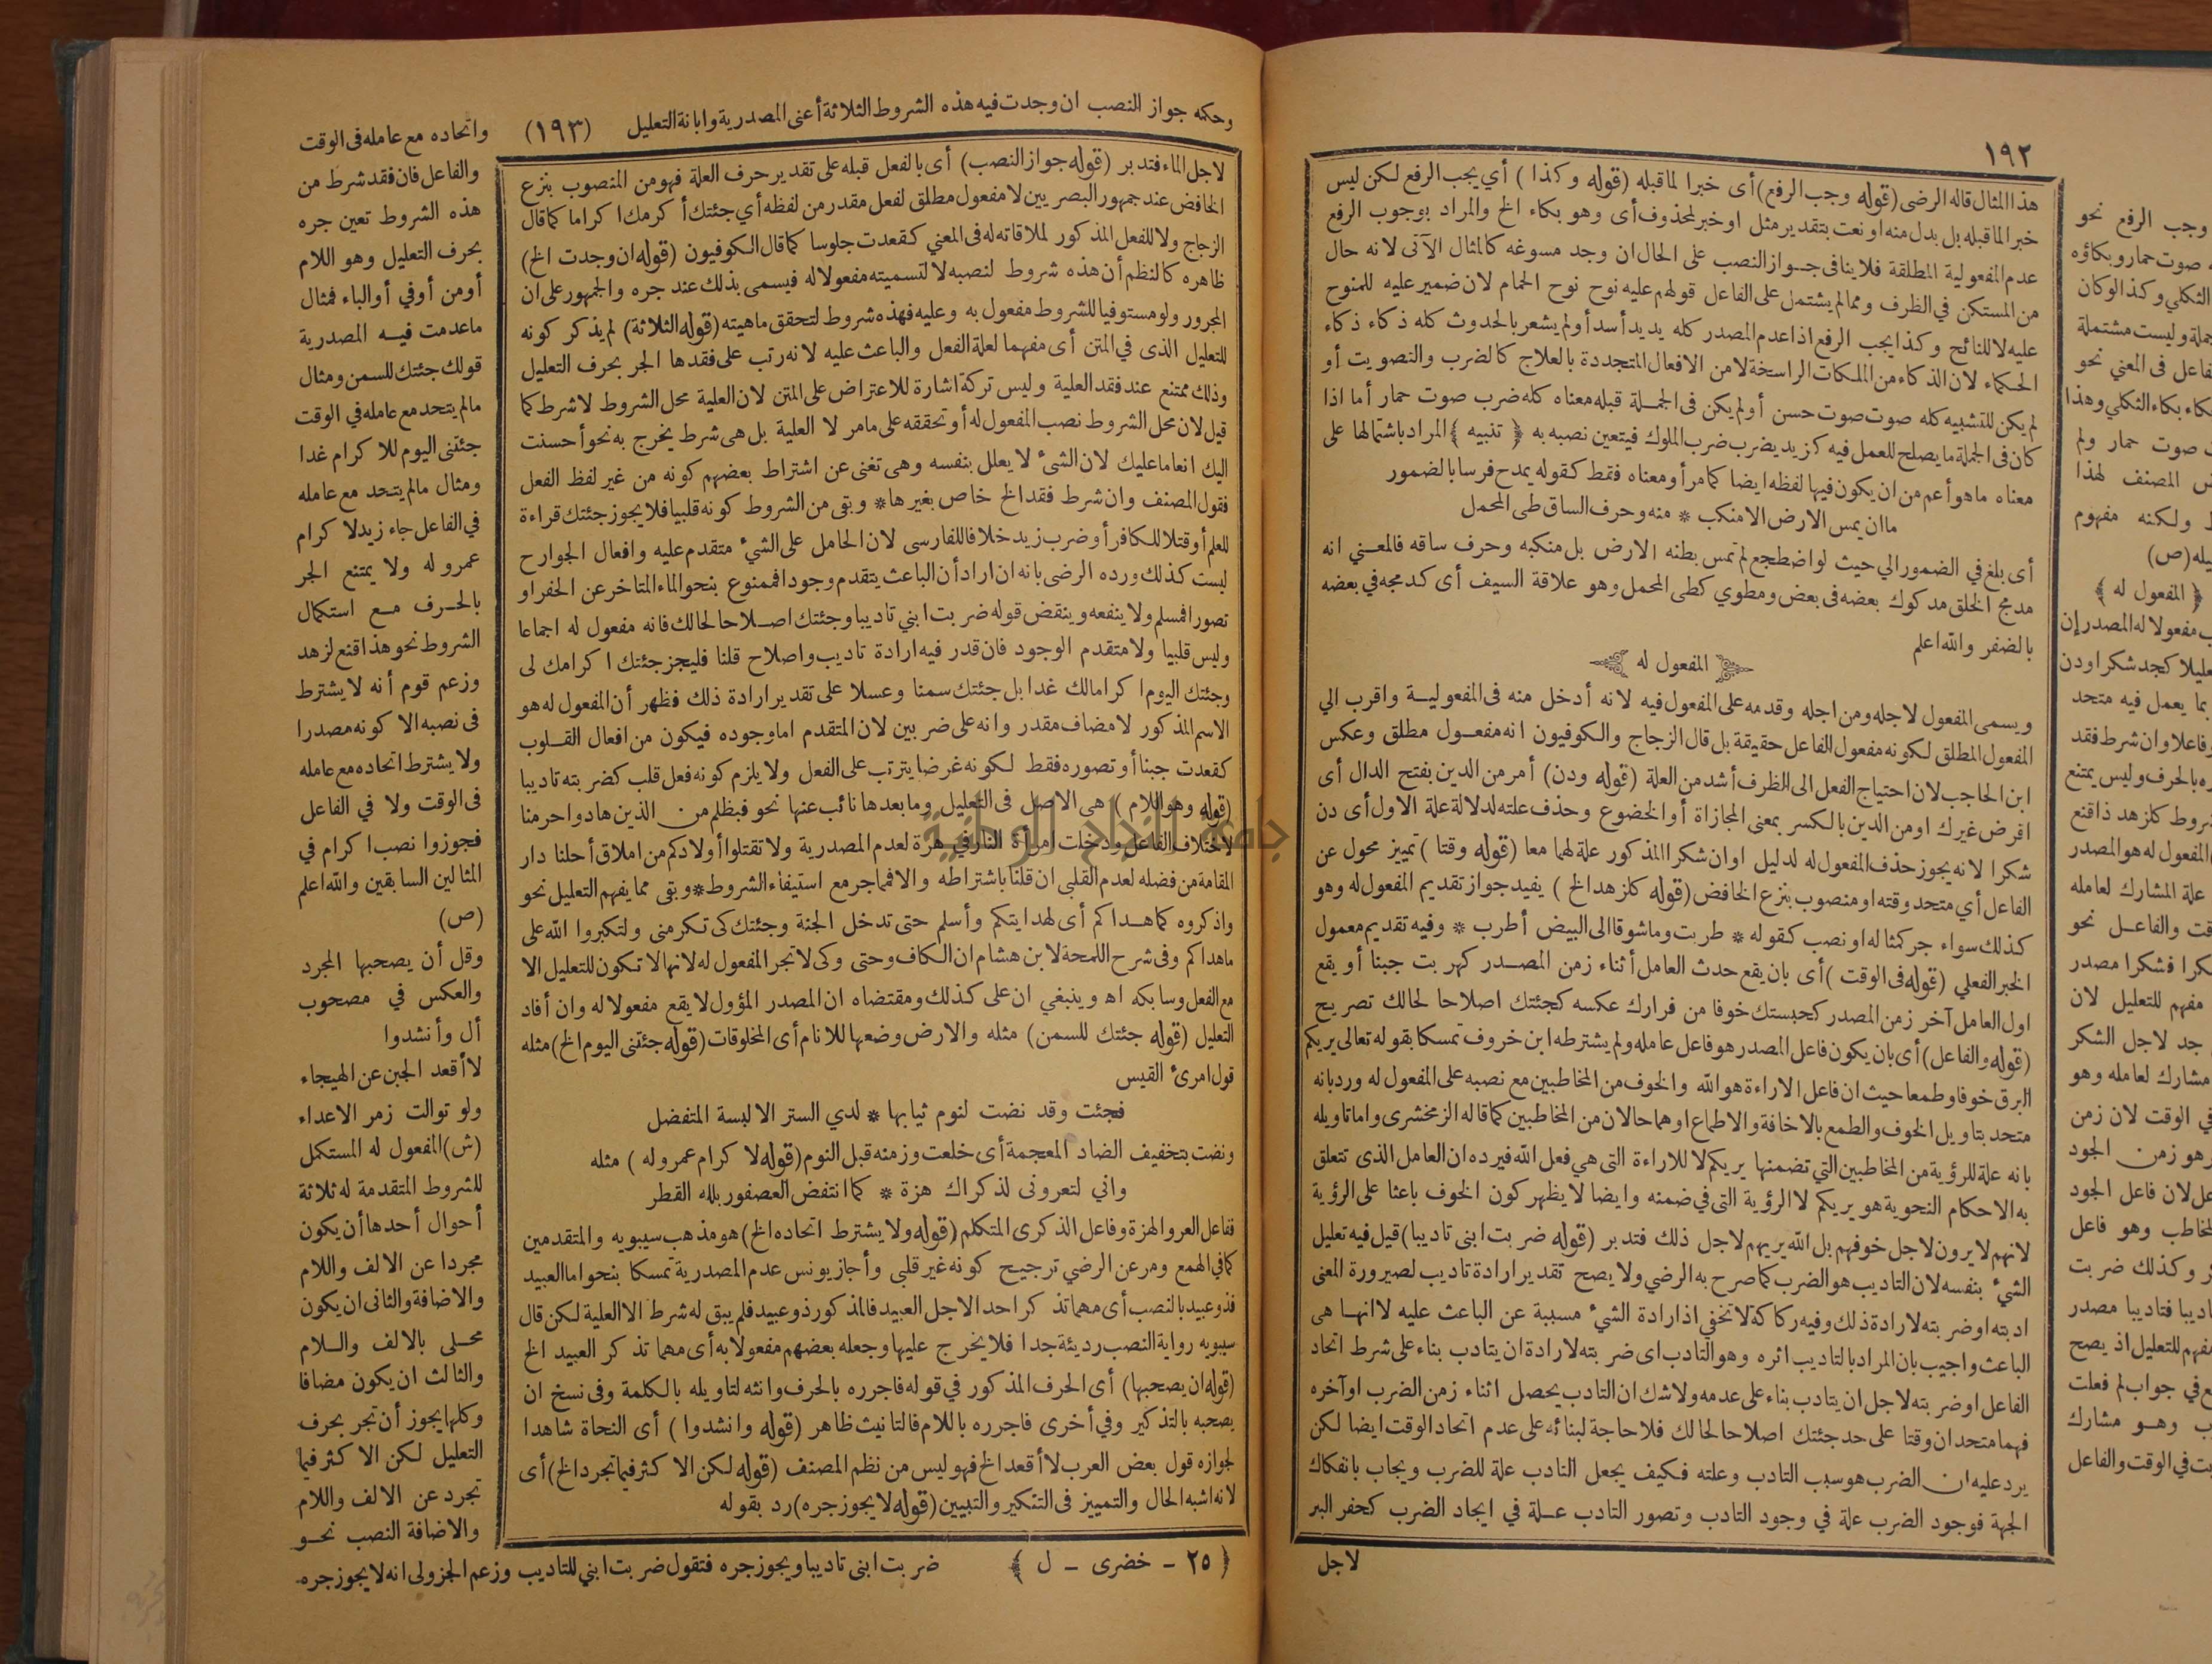 ١٩٢
هذا المثال قاله الرضى (قوله وجب الرفع) أى خبرا لما قبله (قوله وكذا) أي يجب الرفع لكن ليس
خبرا لما قبله بل بدل منه او نعت بتقدير مثل او خبر لمحذوف أى وهو بكاء الخ والمراد بوجوب الرفع
عدم المفعولية المطلقة فلا ينافى جواز النصب على الحال ان وجد مسوغه كالمثال الآتى لانه حال
من المستكن في الظرف ومما لم يشتمل على الفاعل قولهم عليه نوح نوح الحمام لان ضمير عليه للمنوح
عليه لا للنائح وكذا يجب الرفع اذا عدم المصدر كله يد يد أسد أو لم يشعر بالحدوث كله ذكاء ذكاء
الحكماء لان الذكاء من الملكات الراسخة لا من الافعال المتجددة بالعلاج كالضرب والتصويت أو
لم يكن للتشبيه كله صوت صوت حسن أو لم يكن فى الجملة قبله معناه كله ضرب صوت حمار أما اذا
كان فى الجملة ما يصلح للعمل فيه كزيد يضرب ضرب الملوك فيتعين نصبه به ﴿ تنبيه ﴾ المراد باشتمالها على
معناه ما هو أعم من ان يكون فيها لفظه ايضا كما مر أو معناه فقط كقوله يمدح فرسا بالضمور
ما ان يمس الارض الا منكب * منه وحرف الساق طى المحمل
أى بلغ في الضمور الي حيث لو اضطجع لم تمس بطنه الارض بل منكبه وحرف ساقه فالمعنى انه
مدمج الخلق مدكوك بعضه فى بعض ومطوي كطى المحمل وهو علاقة السيف أى كدمجه في بعضه
بالضفر والله اعلم
المفعول له
ويسمى المفعول لاجله ومن اجله وقدمه على المفعول فيه لانه أدخل منه فى المفعولية واقرب الي
المفعول المطلق لكونه مفعول الفاعل حقيقة بل قال الزجاج والكوفيون انه مفعول مطلق وعكس
ابن الحاجب لان احتياج الفعل الى الظرف أشد من العلة (قوله ودن) أمر من الدين بفتح الدال أى
اقرض غيرك او من الدين بالكسر بمعنى المجازاة أو الخضوع وحذف علته لدلالة علة الاول أى دن
شكرا لانه يجوز حذف المفعول له لدليل او ان شكرا المذكور علة لهما معا (قوله وقتا) تمييز محول عن
الفاعل أي متحد وقته او منصوب بنزع الخافض (قوله كلزهد الخ) يفيد جواز تقديم المفعول له وهو
كذلك سواء جر كمثاله او نصب كقوله * طربت وما شوقا الى البيض أطرب * وفيه تقديم معمول
الخبر الفعلي (قوله فى الوقت) أى بان يقع حدث العامل أثناء زمن المصدر كهربت جبنا أو يقع
اول العامل آخر زمن المصدر كحبستك خوفا من فرارك عكسه كجئتك اصلاحا لحالك تصريح
(قوله والفاعل) أى بان يكون فاعل المصدر هو فاعل عامله ولم يشترطه ابن خروف تمسكا بقوله تعالى يريكم
البرق خوفا وطمعا حيث ان فاعل الاراءة هو الله والخوف من المخاطبين مع نصبه على المفعول له وردبانه
متحد بتاويل الخوف والطمع بالاخافة والاطماع او هما حالان من المخاطبين كما قاله الزمخشرى واما تاويله
بانه علة للرؤية من المخاطبين التي تضمنها يريكم لا للاراءة التى هى فعل الله فيرده ان العامل الذى تتعلق
به الاحكام النحوية هو يريكم لا الرؤية التى في ضمنه وايضا لا يظهر كون الخوف باعثا على الرؤية
لانهم لا يرون لاجل خوفهم بل الله يريهم لاجل ذلك فتدبر (قوله ضربت ابنى تاديبا) قيل فيه تعليل
الشيء بنفسه لان التاديب هو الضرب كما صرح به الرضي ولا يصح تقدير ارادة تاديب لصيرورة المعنى
ادبته او ضربته لارادة ذلك وفيه ركاكة لا تخفي اذ ارادة الشيء مسببة عن الباعث عليه لا انها هى
الباعث واجيب بان المراد بالتاديب اثره وهو التادب اى ضربته لارادة ان يتادب بناء على شرط اتحاد
الفاعل او ضربته لاجل ان يتادب بناء على عدمه ولا شك ان التادب يحصل اثناء زمن الضرب او آخره
فهما متحدان وقتا على حد جئتك اصلاحا لحالك فلا حاجة لبنائه على عدم اتحاد الوقت ايضا لكن
يرد عليه ان الضرب هو سبب التادب وعلته فكيف يجعل التادب علة للضرب ويجاب بانفكاك
الجهة فوجود الضرب علة في وجود التادب وتصور التادب علة في ايجاد الضرب كحفر البر
لاجل
وجب الرفع نحو
صوت حمار وبكاؤه
الثكلي وكذا لو كان
وليست مشتملة
فاعل فى المعني نحو
بكاء الثكلي وهذا
صوت حمار ولم
المصنف لهذا
ولكنه مفهوم
(ص)
﴿ المفعول له ﴾
مفعولا له المصدر إن
تعليلا كجد شكرا ودن
بما يعمل فيه متحد
وفاعلا وان شرط فقد
بالحرف وليس يمتنع
شروط كلزهد ذا قنع
المفعول له هو المصدر
علة المشارك لعامله
والفاعل نحو
شكرا فشكرا مصدر
مفهم للتعليل لان
جد لاجل الشكر
مشارك لعامله وهو
في الوقت لان زمن
هو زمن الجود
لان فاعل الجود
المخاطب وهو فاعل
وكذلك ضربت
تاديبا فتاديبا مصدر
مفهم للتعليل اذ يصح
في جواب لم فعلت
وهو مشارك
في الوقت والفاعل
وحكمه جواز النصب ان وجدت فيه هذه الشروط الثلاثة أعنى المصدرية وابانة التعليل (١٩٣)
لاجل الماء فتدبر (قوله جواز النصب) أى بالفعل قبله على تقدير حرف العلة فهو من المنصوب بنزع
الخافض عند جمهور البصريين لا مفعول مطلق لفعل مقدر من لفظه أي جئتك أكرمك اكراما كما قال
الزجاج ولا للفعل المذكور لملاقاته له فى المعني كقعدت جلوسا كما قال الكوفيون (قوله ان وجدت الخ)
ظاهره كالنظم أن هذه شروط لنصبه لا لتسميته مفعولا له فيسمى بذلك عند جره والجمهور على ان
المجرور ولو مستوفيا للشروط مفعول به وعليه فهذه شروط لتحقق ماهيته (قوله الثلاثة) لم يذكر كونه
للتعليل الذى في المتن أى مفهما لعلة الفعل والباعث عليه لانه رتب على فقدها الجر بحرف التعليل
وذلك ممتنع عند فقد العلية وليس تركه اشارة للاعتراض على المتن لان العلية محل الشروط لا شرط كما
قيل لان محل الشروط نصب المفعول له أو تحققه على ما مر لا العلية بل هى شرط يخرج به نحو أحسنت
اليك انعاما عليك لان الشئ لا يعلل بنفسه وهى تغنى عن اشتراط بعضهم كونه من غير لفظ الفعل
فقول المصنف وان شرط فقد الخ خاص بغيرها* وبقى من الشروط كونه قلبيا فلا يجوز جئتك قراءة
للعلم أو قتلا للكافر أو ضرب زيد خلافا للفارسى لان الحامل على الشئ متقدم عليه وافعال الجوارح
ليست كذلك ورده الرضى بانه ان اراد أن الباعث يتقدم وجودا فممنوع بنحو الماء المتاخر عن الحفر او
تصورا فمسلم ولا ينفعه وينقض قوله ضربت ابني تاديبا وجئتك اصلاحا لحالك فانه مفعول له اجماعا
وليس قلبيا ولا متقدم الوجود فان قدر فيه ارادة تاديب واصلاح قلنا فليجز جئتك اكرامك لى
وجئتك اليوم اكرامالك غدا بل جئتك سمنا وعسلا على تقدير ارادة ذلك فظهر أن المفعول له هو
الاسم المذكور لا مضاف مقدر وانه على ضربين لان المتقدم اما وجوده فيكون من افعال القلوب
كقعدت جبنا أو تصوره فقط لكونه غرضا يترتب على الفعل ولا يلزم كونه فعل قلب كضربته تاديبا
(قوله وهو اللام) هى الاصل فى التعليل وما بعدها نائب عنها نحو فبظلم من الذين هادوا حرمنا
لاختلاف الفاعل ودخلت امرأة النار في هرة لعدم المصدرية ولا تقتلوا أولادكم من املاق أحلنا دار
المقامة من فضله لعدم القلبي ان قلنا باشتراطه والا فما جر مع استيفاء الشروط*وبقى مما يفهم التعليل نحو
واذكروه كما هداكم أى لهدايتكم وأسلم حتى تدخل الجنة وجئتك كى تكرمنى ولتكبروا الله على
ما هداكم وفى شرح اللمحة لابن هشام ان الكاف وحتى وكى لا تجر المفعول له لانها لا تكون للتعليل الا
مع الفعل وسابكه اه وينبغي ان على كذلك ومقتضاه ان المصدر المؤول لا يقع مفعولا له وان أفاد
التعليل (قوله جئتك للسمن) مثله والارض وضعها للانام أى المخلوقات (قوله جئتنى اليوم الخ) مثله
قول امرئ القيس
فجئت وقد نضت لنوم ثيابها * لدي الستر الا لبسة المتفضل
ونضت بتخفيف الضاد المعجمة أى خلعت وزمنه قبل النوم (قوله لاكرام عمرو له) مثله
واني لتعرونى لذكراك هزة * كما انتفض العصفور بلله القطر
ففاعل العرو الهزة وفاعل الذكرى المتكلم (قوله ولا يشترط اتحاده الخ) هو مذهب سيبويه والمتقدمين
كما في الهمع ومر عن الرضي ترجيح كونه غير قلبى وأجاز يونس عدم المصدرية تمسكا بنحو اما العبيد
فذو عبيد بالنصب أى مهما تذكر احدا لاجل العبيد فالمذكور ذو عبيد فلم يبق له شرط الا العلية لكن قال
سيبويه رواية النصب رديئة جدا فلا يخرج عليها وجعله بعضهم مفعولا به أى مهما تذكر العبيد الخ
(قوله ان يصحبها) أى الحرف المذكور في قوله فاجرره بالحرف وانثه لتاويله بالكلمة وفى نسخ ان
يصحبه بالتذكير وفي أخرى فاجرره باللام فالتانيث ظاهر (قوله وانشدوا) أى النحاة شاهدا
لجوازه قول بعض العرب لا أقعد الخ فهو ليس من نظم المصنف (قوله لكن الاكثر فيما تجرد الخ) أى
لانه اشبه الحال والتمييز فى التنكير والتبيين (قوله لا يجوز جره) رد بقوله
واتحاده مع عامله فى الوقت
والفاعل فان فقد شرط من
هذه الشروط تعين جره
بحرف التعليل وهو اللام
أو من أو في أو الباء فمثال
ما عدمت فيه المصدرية
قولك جئتك للسمن ومثال
ما لم يتحد مع عامله في الوقت
جئتنى اليوم للاكرام غدا
ومثال ما لم يتحد مع عامله
في الفاعل جاء زيد لاكرام
عمرو له ولا يمتنع الجر
بالحرف مع استكمال
الشروط نحو هذا قنع لزهد
وزعم قوم أنه لا يشترط
فى نصبه الا كونه مصدرا
ولا يشترط اتحاده مع عامله
فى الوقت ولا في الفاعل
فجوزوا نصب اكرام في
المثالين السابقين والله اعلم
(ص)
وقل أن يصحبها المجرد
والعكس في مصحوب
أل وأنشدوا
لا أقعد الجبن عن الهيجاء
ولو توالت زمر الاعداء
(ش) المفعول له المستكمل
للشروط المتقدمة له ثلاثة
أحوال أحدها أن يكون
مجردا عن الالف واللام
والاضافة والثانى ان يكون
محلى بالالف واللام
والثالث ان يكون مضافا
وكلها يجوز أن تجر بحرف
التعليل لكن الاكثر فيما
تجرد عن الالف واللام
والاضافة النصب نحو
ضربت ابنى تاديبا ويجوز جره فتقول ضربت ابني للتاديب وزعم الجزولى انه لا يجوز جره
﴿ ٢٥ - خضرى - ل ﴾
جامعة النجاح الوطنية